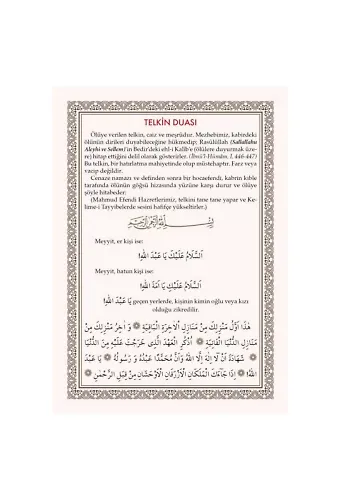 TELKİN DUASI
Ölüye verilen telkin, caiz ve meşrûdur. Mezhebimiz, kabirdeki
ölünün dirileri duyabileceğine hükmedip; Rasûlüllâh (Sallallahu
Aleyhi ve Sellem)'in Bedir'deki ehl-i Kalîb'e (ölülere duyurmak üze-
re) hitap ettiğini delil olarak gösterirler. (İbnü'l-Hümâm, I, 446-447)
Bu telkin, bir hatırlatma mahiyetinde olup müstehaptır. Farz veya
vacip değildir.
Cenaze namazı ve definden sonra bir hocaefendi, kabrin kıble
tarafında ölünün göğsü hizasında yüzüne karşı durur ve ölüye
şöyle hitabeder:
(Mahmud Efendi Hazretlerimiz, telkini tane tane yapar ve Ke-
lime-i Tayyibelerde sesini hafifçe yükseltirler.)
بِسْمِ اللّٰهِ الرَّحْمٰنِ الرَّحِيمِ
Meyyit, er kişi ise:
اَلسَّلَامُ عَلَيْكَ يَا عَبْدَ اللّٰهِ!
Meyyit, hatun kişi ise:
اَلسَّلَامُ عَلَيْكِ يَا اَمَةَ اللّٰهِ!
يَا عَبْدَ اللّٰهِ! geçen yerlerde, kişinin kimin oğlu veya kızı
olduğu zikredilir.
هٰذَا اَوَّلُ مَنْزِلِكَ مِنْ مَنَازِلِ الْاٰخِرَةِ الْبَاقِيَةِ ۞ وَ اٰخِرُ مَنْزِلِكَ مِنْ
مَنَازِلِ الدُّنْيَا الْفَانِيَةِ ۞ اُذْكُرِ الْعَهْدَ الَّذِى خَرَجْتَ عَلَيْهِ مِنَ الدُّنْيَا
۞ شَهَادَةَ اَنْ لَا اِلٰهَ اِلَّا اللّٰهُ وَاَنَّ مُحَمَّدًا عَبْدُهُ وَ رَسُولُهُ ۞ يَا عَبْدَ
اللّٰهِ! ۞ اِذَا جَاءَكَ الْمَلَكَانِ الْاَزْرَقَانِ الْاَوْحَشَانِ مِنْ قِبَلِ الرَّحْمٰنِ ۞